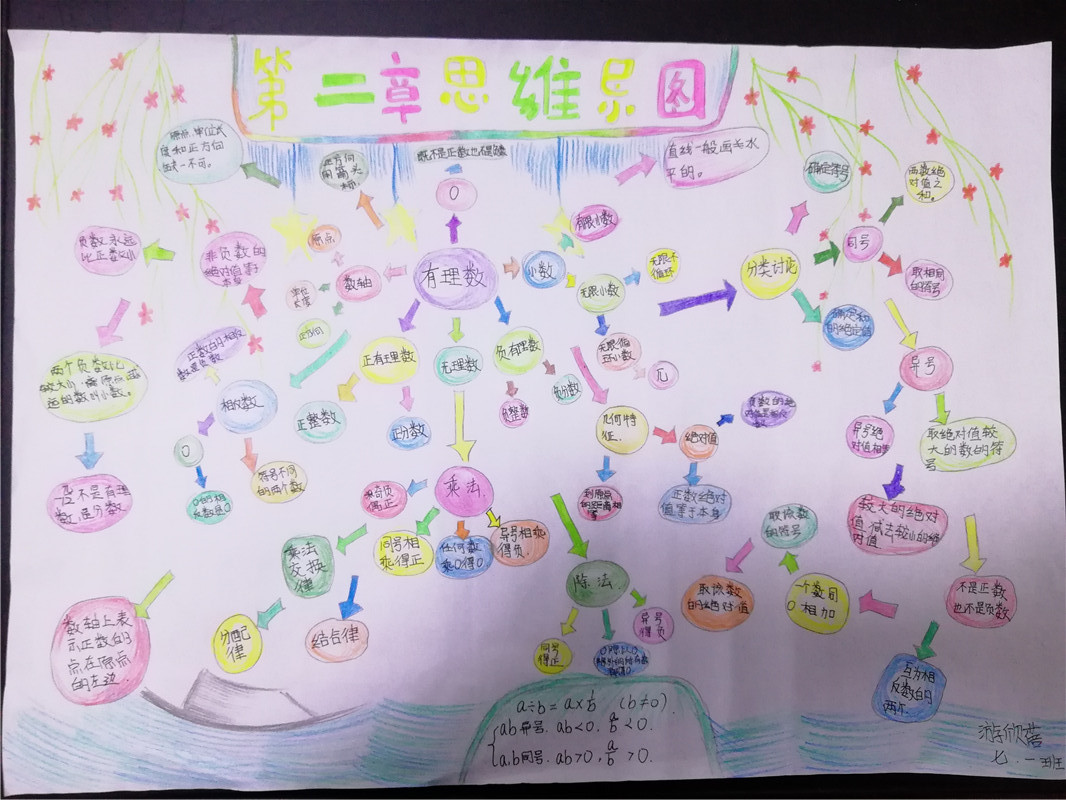 第二章思维导图
原点、单位长
度和正方向
缺一不可。
正方向
用箭头
标
既不是正数也不是负数
0
直线一般画成水
平的。
确定符号
两数绝
对值之
和。
同号
取相同
的符号
分类讨论
确定和
的绝对值
负数永远
比正数小
非负数的
绝对值等于
本身
原点
单位
长度
正方向
数轴
有理数
小数
有限小数
无限小数
无限不
循环
无限循
环小数
两个负数比
较大小,离原点
远的数小。
正数的相反
数是负数
相反数
0
0的相
反数是0
符号不同
的两个数
正有理数
正整数
正分数
无理数
负有理数
负整数
负分数
几何特
征.
绝对值
负数的绝
对值是相反
数
到原点
的距离相
等
正数绝对
值等于本身
异号
异号绝
对值相等
取绝对值较
大的数的符
号
较大的绝对
值,减去较小的绝
对值
取该数
的符号
取该数
的绝对值
一个数同
0相加
不是正数
也不是负数
互为相
反数的
两个
不是有理
数,是分数
数轴上表
示正数的
点在原点
的左边.
乘法
负奇负
偶正
同号相
乘得正
任何数
乘0得0
异号相乘
得负.
乘法
交换
律
分配
律
结合律
除法
同号
得正
异号
得负
a÷b = a×1/b (b≠0).
ab异号. ab<0, a/b<0.
a,b同号. ab>0, a/b>0.
七.一班